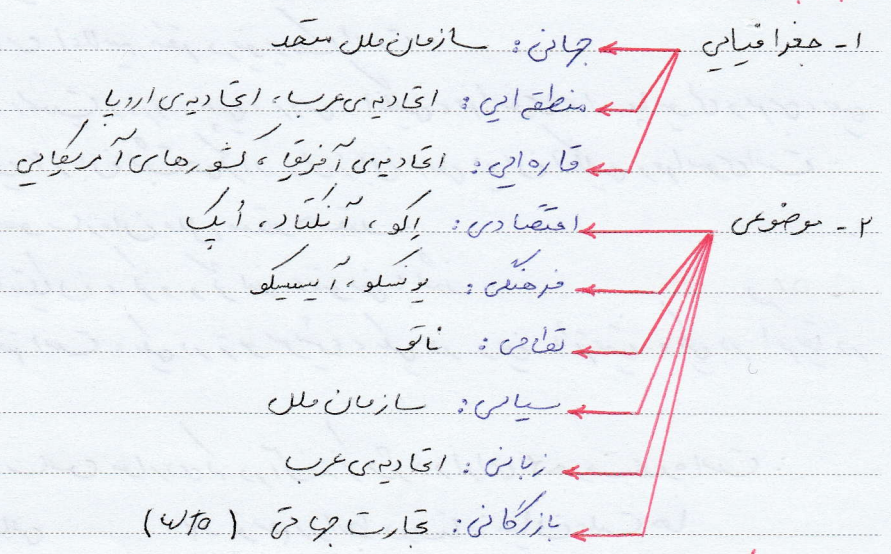 ۱- جغرافیایی جهانی: سازمان ملل متحد
منطقه‌ایی: اتحادیه‌ی عرب، اتحادیه‌ی اروپا
قاره‌ایی: اتحادیه‌ی آفریقا، کشورهای آمریکایی
۲- موضوعی اقتصادی: اِکو، آنکتاد، اُپک
فرهنگی: یونسکو، آیسیسکو
نظامی: ناتو
سیاسی: سازمان ملل
زبانی: اتحادیه‌ی عرب
بازرگانی: تجارت جهانی (WTO)